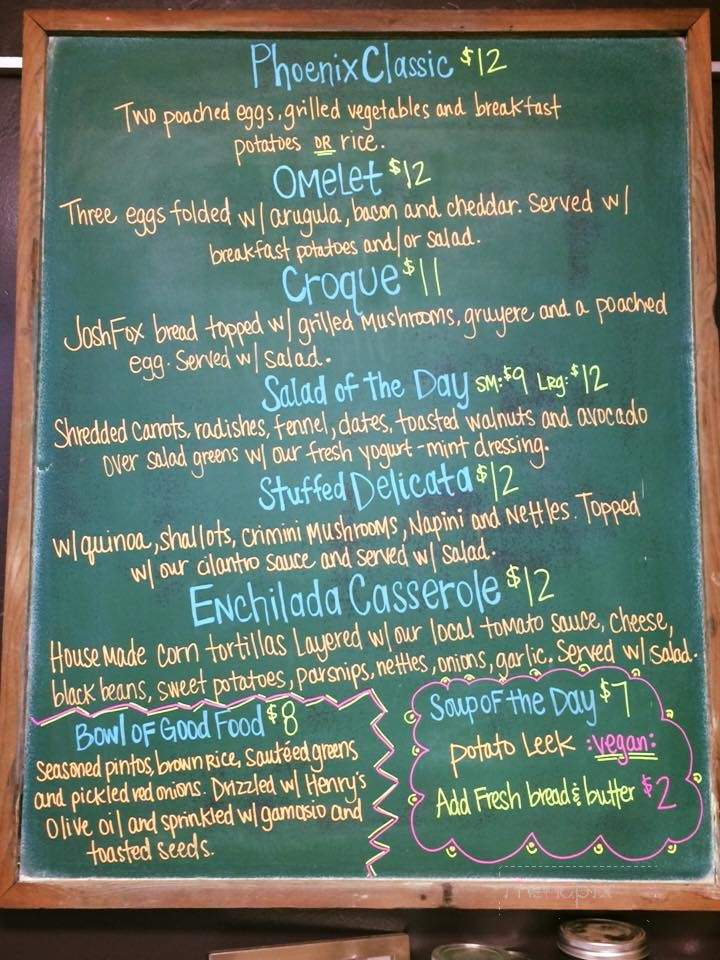 Phoenix Classic $12
Two poached eggs, grilled vegetables and breakfast
potatoes OR rice.
Omelet $12
Three eggs folded w/ arugula, bacon and cheddar. Served w/
breakfast potatoes and/or salad.
Croque $11
JoshFox bread topped w/ grilled Mushrooms, gruyere and a poached
egg. Served w/ salad.
Salad of the Day SM: $9 LRG: $12
Shredded Carrots, radishes, fennel, dates, toasted walnuts and avocado
over salad greens w/ our fresh yogurt-mint dressing.
Stuffed Delicata $12
w/ quinoa, shallots, Crimini Mushrooms, Napini and Nettles. Topped
w/ our cilantro sauce and served w/ salad.
Enchilada Casserole $12
House Made corn tortillas Layered w/ our local tomato sauce, cheese,
black beans, sweet potatoes, parsnips, nettles, onions, garlic. Served w/ Salad.
Bowl of Good Food $8
Seasoned pintos, brown rice, Sautéed greens
and pickled red onions. Drizzled w/ Henry's
Olive oil and sprinkled w/ gamasio and
toasted seeds.
Soup of the Day $7
potato Leek :vegan:
Add Fresh bread & butter $2